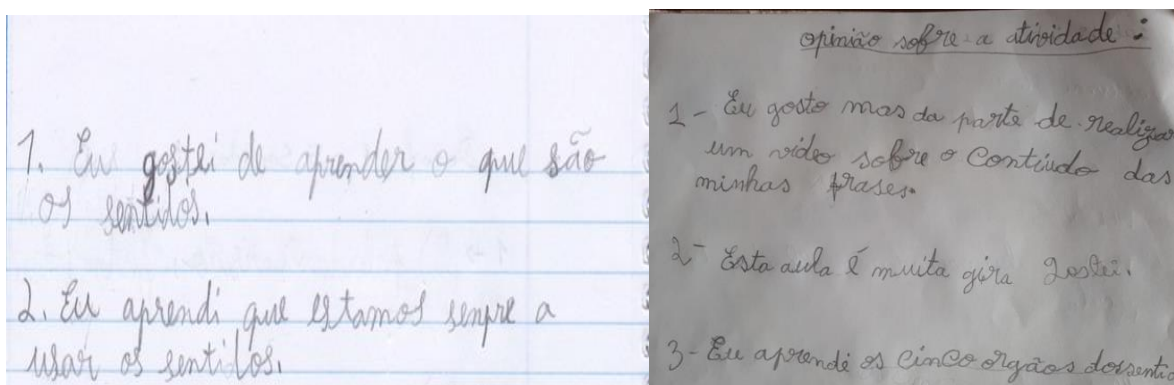 1. Eu gostei de aprender o que são
os sentidos.
2. Eu aprendi que estamos senpre a
usar os sentidos.
opinião sobre a atividade:
1- Eu gosto mas da parte de realiza
um video sobre o Contiudo das
minhas frases.
2- Esta aula é muita gira gostei.
3- Eu aprendi os cinco orgãos dos senti